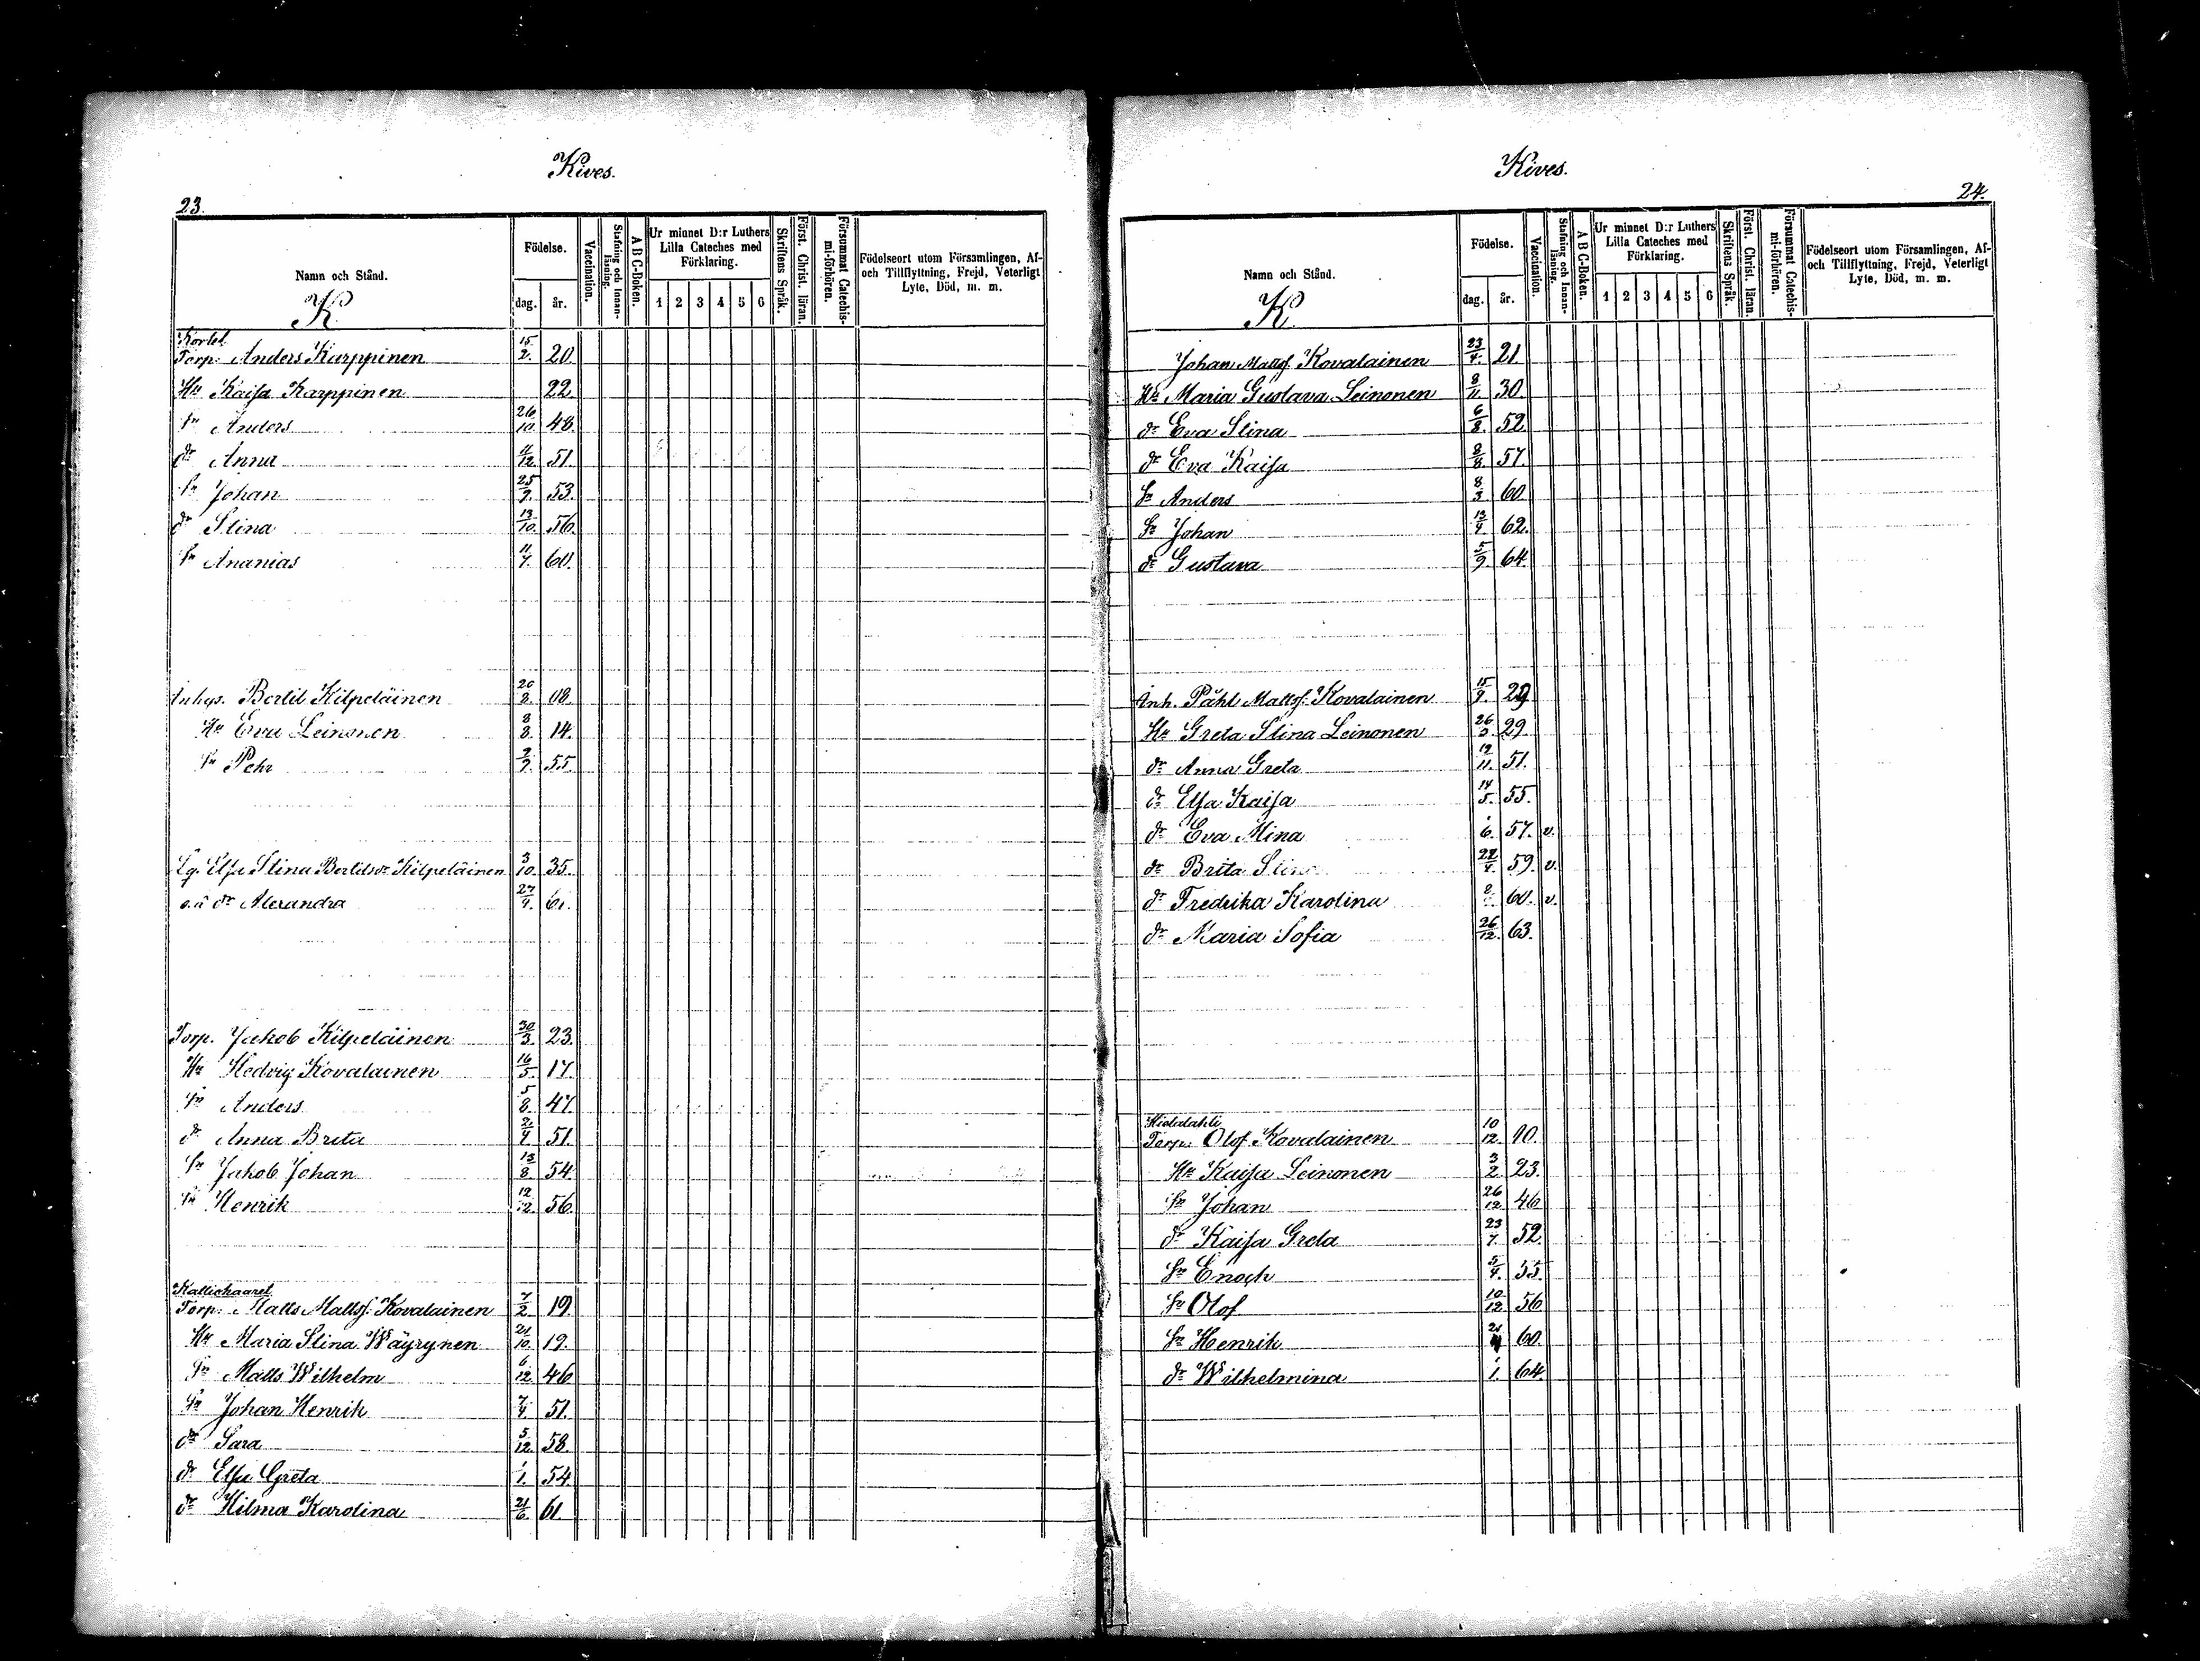 Kives.
23.
Namn och Stånd.
Födelse.
dag.
år.
Vaccination.
Stafning och Innan-
läsning.
A B C-Boken.
Ur minnet D:r Luthers
Lilla Cateches med
Förklaring.
1 2 3 4 5 6
Skriftens Språk.
Först. Christ. läran.
Försummat Catechis-
mi-förhören.
Födelseort utom Församlingen, Af-
och Tillflyttning, Frejd, Veterligt
Lyte, Död, m. m.
K
Torp. Anders Karppinen 15/2. 20.
Hu Kaisa Karppinen 22.
Sn Anders 26/10. 48.
dr Anna 4/12. 51.
Sn Johan 25/9. 53.
dr Stina 13/10. 56.
Sn Ananias 11/7. 60.
Inhys. Bertil Kilpeläinen 20/3. 08.
Hu Eva Leinonen 8/8. 14.
Sn Pehr 2/9. 55.
Lg. Elsa Stina Bertilsdr Kilpeläinen 3/10. 35.
o.ä dr Alexandra 27/4. 61.
Torp. Jakob Kilpeläinen 30/3. 23.
Hu Hedvig Kovalainen 16/5. 17.
Sn Anders 5/8. 47.
dr Anna Brita 51.
Sn Jakob Johan 13/8. 54.
Sn Henrik 12/12. 56.
Torp. Matts Mattss. Kovalainen 7/2. 19.
Hu Maria Stina Wäyrynen 21/10. 19.
Sn Matts Wilhelm 6/12. 46.
Sn Johan Henrik 7/4. 51.
dr Sara 5/12. 58.
dr Elsa Greta 1/1. 54.
dr Hilma Karolina 21/6. 61.
Kives.
24.
Namn och Stånd.
Födelse.
dag.
år.
Vaccination.
Stafning och Innan-
läsning.
A B C-Boken.
Ur minnet D:r Luthers
Lilla Cateches med
Förklaring.
1 2 3 4 5 6
Skriftens Språk.
Först. Christ. läran.
Försummat Catechis-
mi-förhören.
Födelseort utom Församlingen, Af-
och Tillflyttning, Frejd, Veterligt
Lyte, Död, m. m.
K.
Johan Mattss. Kovalainen 23/4. 21.
Hu Maria Gustava Leinonen 8/11. 30.
dr Eva Stina 6/8. 52.
dr Eva Kaisa 57.
Sn Anders 8/3. 60.
Sn Johan 62.
dr Gustava 5/9. 64.
Inh. Påhl Mattss. Kovalainen 15/9. 29.
Hu Greta Stina Leinonen 26/3. 29.
dr Anna Greta 51.
dr Elsa Kaisa 14/5. 55.
dr Eva Mina 1/6. 57. v.
dr Brita Stina 59. v.
dr Fredrika Karolina 60. v.
dr Maria Sofia 26/12. 63.
Torp. Olof Kovalainen 10/12. 10.
Hu Kaisa Leinonen 3/2. 23.
Sn Johan 26/12. 46.
dr Kaisa Greta 23/7. 52.
Sn Enoch 5/4. 55.
Sn Olof 10/12. 56.
Sn Henrik 60.
dr Wilhelmina 1/1. 64.